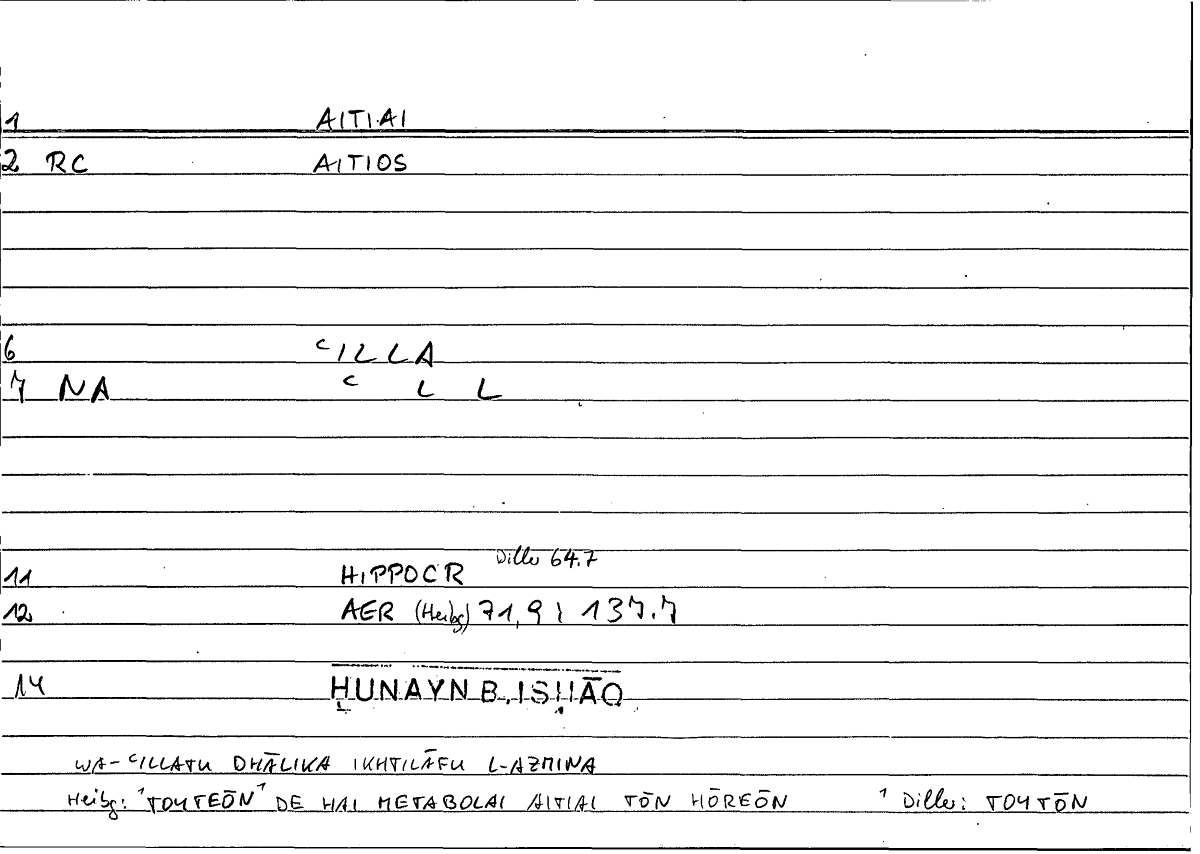 1 AITIAI
2 RC AITIOS
6 ʿILLA
7 NA ʿ L L
11 HIPPOCR Diller 64.7
12 AER (Heibg) 71,9; 137.7
14 ḤUNAYN B. ISḤĀQ
WA-ʿILLATU DHĀLIKA IKHTILĀFU L-AZMINA
Heibg: ¹TOYTEŌN¹ DE HAI METABOLAI AITIAI TŌN HŌREŌN ¹ Diller: TOYTŌN